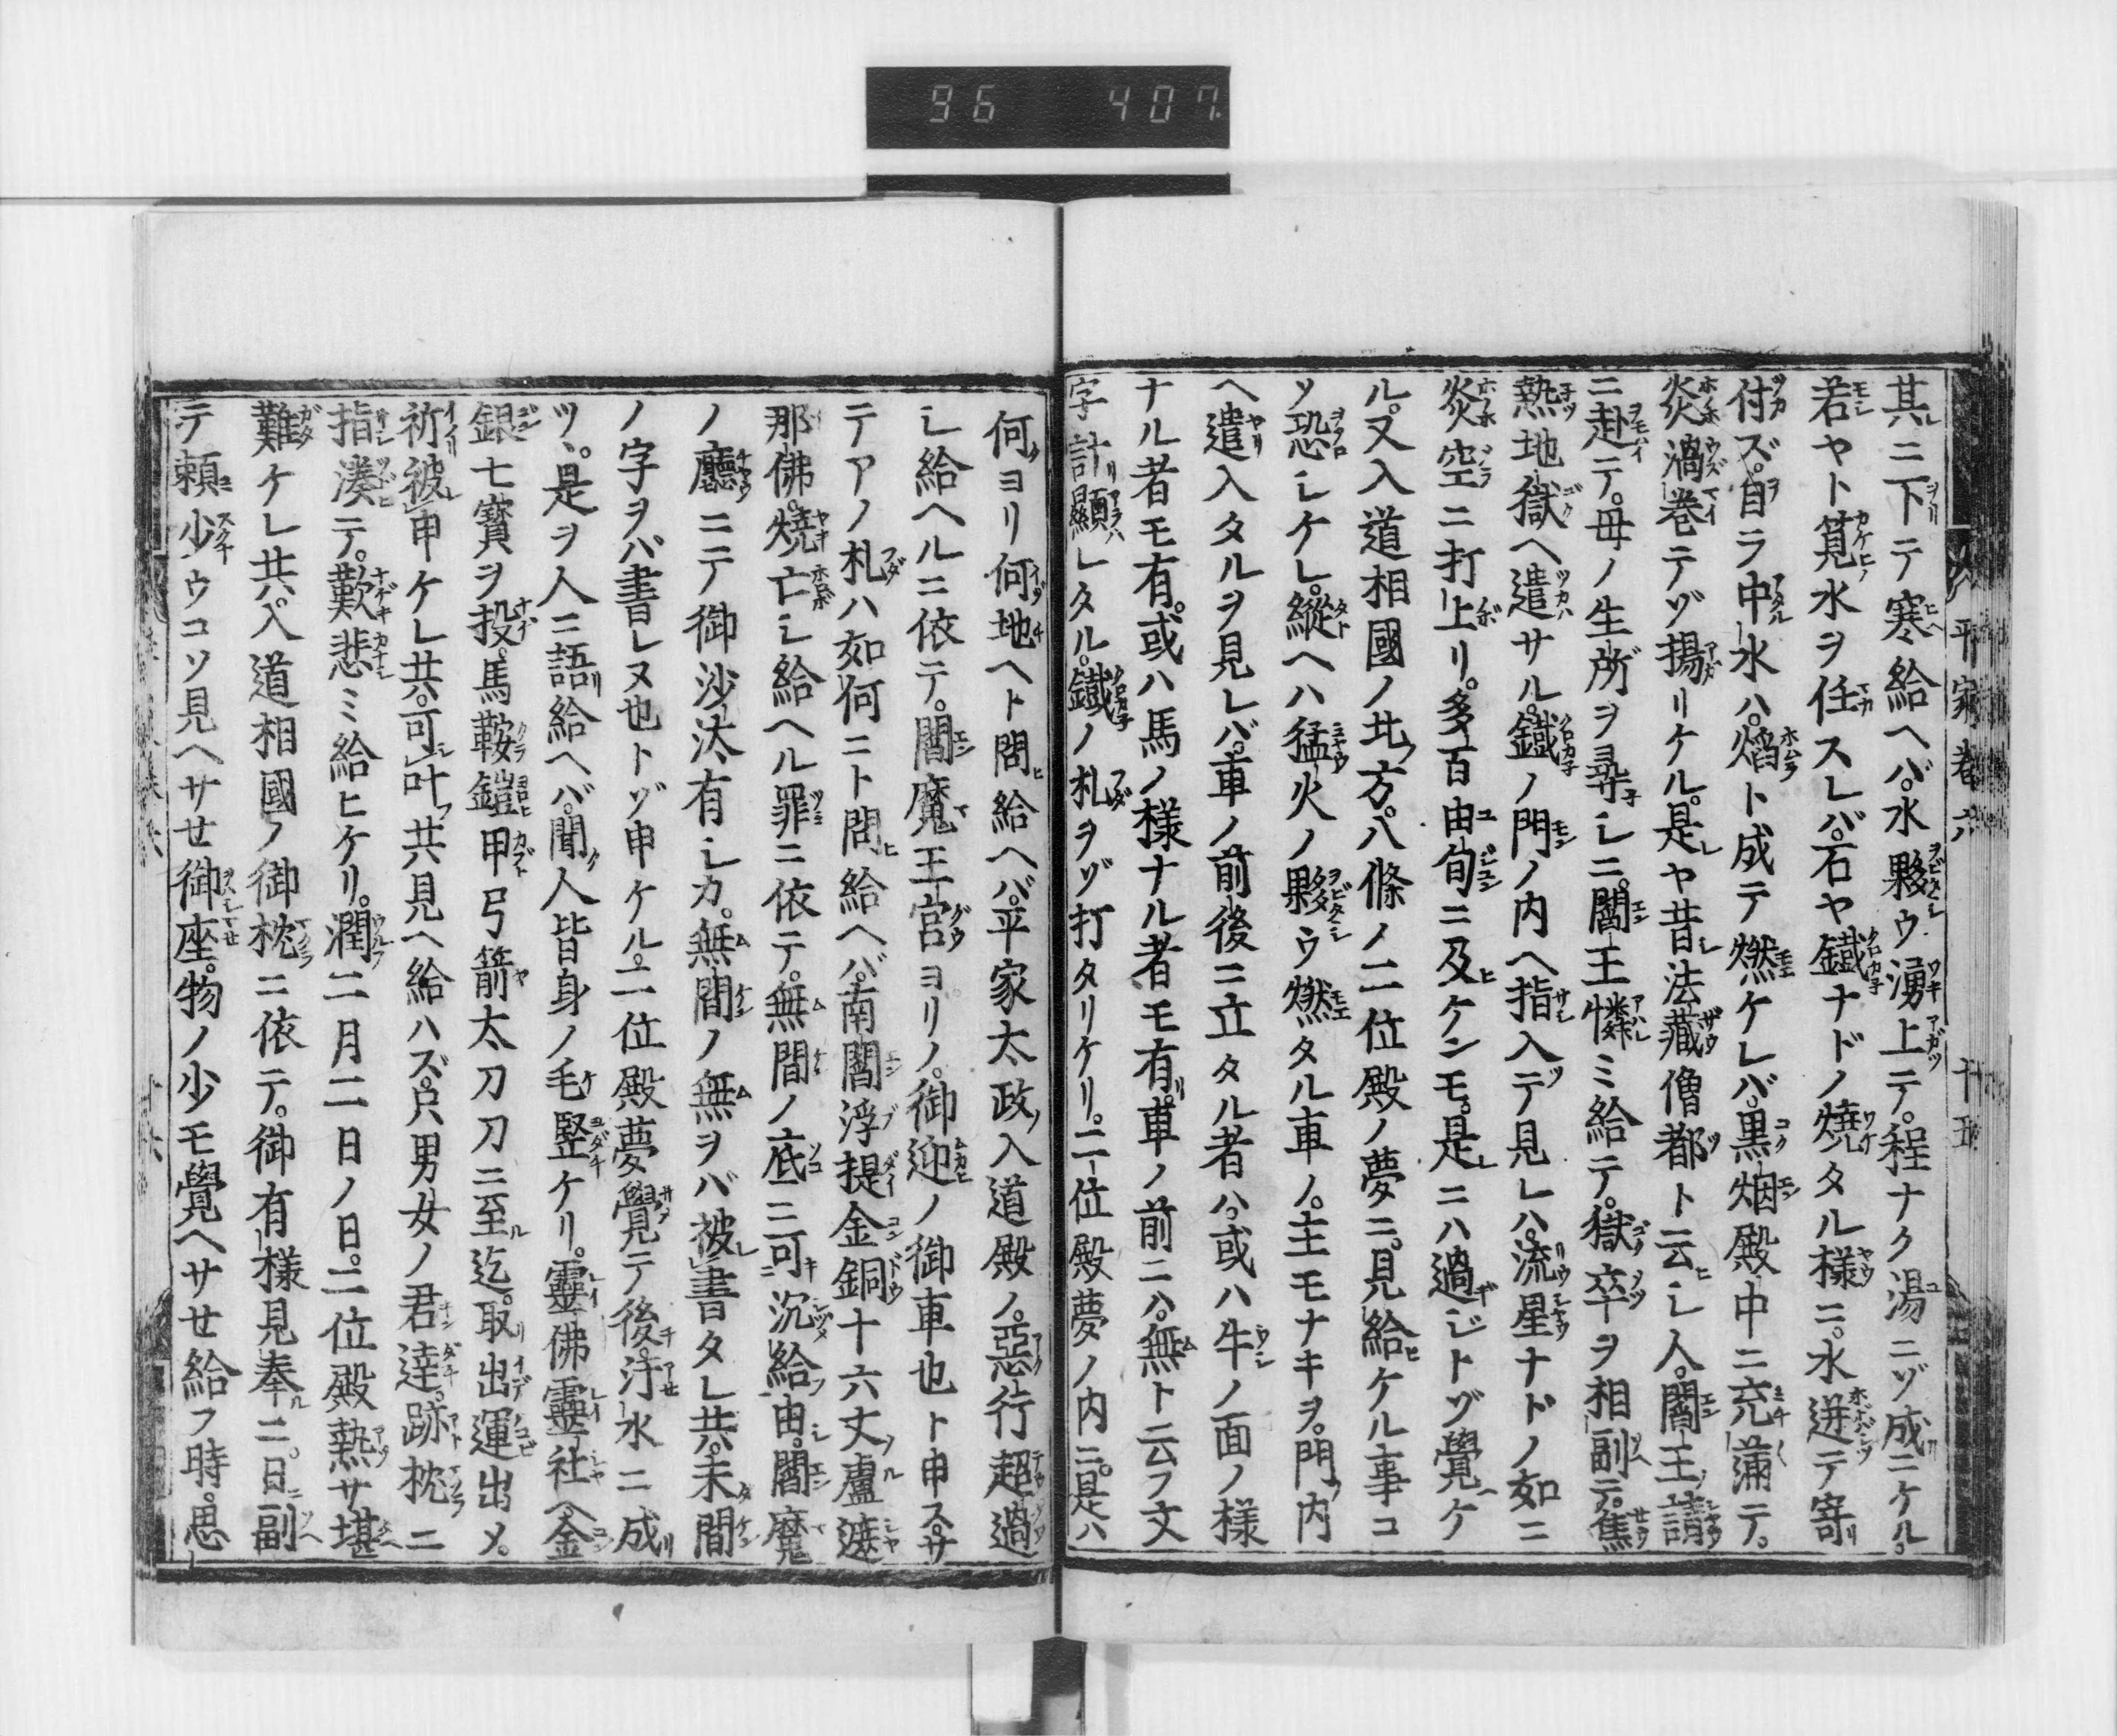 96 407.
平家巻六 十五
其ニ下テ寒給ヘバ。水夥ウ湧上テ。程ナク湯ニゾ成ニケル。
若ヤト筧水ヲ任スレバ。石ヤ鐵ナドノ燒タル様ニ。水迸テ寄
付ズ。自ラ中ル水ハ。焰ト成テ燃ケレバ。黒烟殿中ニ充滿テ。
炎渦巻テゾ揚リケル。是ヤ昔法藏僧都ト云ヒシ人。閻王ノ請
ニ赴テ。母ノ生所ヲ尋シニ。閻王憐ミ給テ。獄卒ヲ相副テ。焦
熱地獄ヘ遣サル。鐵ノ門ノ内ヘ指入テ見レハ。流星ナドノ如ニ
炎空ニ打上リ。多百由旬ニ及ケンモ。是ニハ過ジトゾ覺ケ
ル。又入道相國ノ北ノ方。八條ノ二位殿ノ夢ニ。見給ケル事コ
ソ恐シケレ。縱ヘハ猛火ノ夥ウ燃タル車ノ。主モナキヲ。門ノ内
ヘ遣入タルヲ見レバ。車ノ前後ニ立タル者ハ。或ハ牛ノ面ノ様
ナル者モ有。或ハ馬ノ様ナル者モ有。車ノ前ニハ。無ト云フ文
字計顯レタル。鐵ノ札ヲゾ打タリケリ。二位殿夢ノ内ニ。是ハ
何ヨリ何地ヘト問給ヘバ。平家太政入道殿ノ。惡行超過
シ給ヘルニ依テ。閻魔王宮ヨリノ。御迎ノ御車也ト申ス。サ
テアノ札ハ如何ニト問給ヘバ。南閻浮提金銅十六丈盧遮
那佛。燒亡シ給ヘル罪ニ依テ。無間ノ底ニ可沉給由。閻魔
ノ廳ニテ御沙汰有シカ。無間ノ無ヲバ被書タレ共。未間
ノ字ヲハ書レヌ也トゾ申ケル。二位殿夢覺テ後。汗水ニ成
ツヽ。是ヲ人ニ語給ヘバ。聞人皆身ノ毛竪ケリ。靈佛靈社ヘ金
銀七寳ヲ投。馬鞍鎧甲弓箭太刀刀ニ至迄。取出運出メ。
祈被申ケレ共。可叶共見ヘ給ハズ。只男女ノ君達。跡枕ニ
指湊テ。歎悲ミ給ヒケリ。潤二月二日ノ日。二位殿熱サ堪
難ケレ共。入道相國ノ御枕ニ依テ。御有様見奉ニ。日副
テ頼少ウコソ見ヘサセ御座。物ノ少モ覺ヘサセ給フ時。思